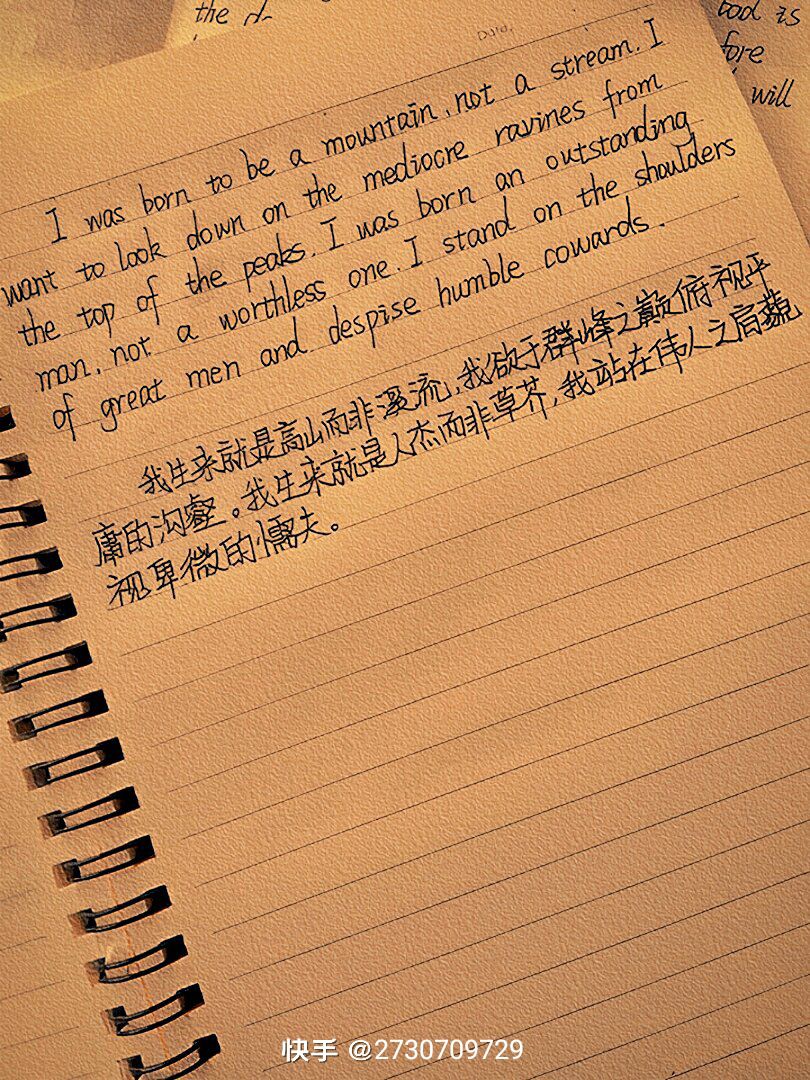 the
bad is
fore
will
Date.
I was born to be a mountain, not a stream. I
want to look down on the mediocre ravines from
the top of the peaks. I was born an outstanding
man, not a worthless one. I stand on the shoulders
of great men and despise humble cowards.
我生来就是高山而非溪流，我欲于群峰之巅俯视平
庸的沟壑。我生来就是人杰而非草芥，我站在伟人之肩藐
视卑微的懦夫。
快手 @2730709729